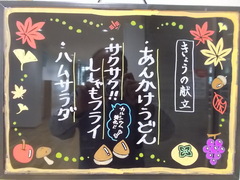 きょうの献立
・あんかけうどん
・サクサク!!
ししゃもフライ
・ハムサラダ